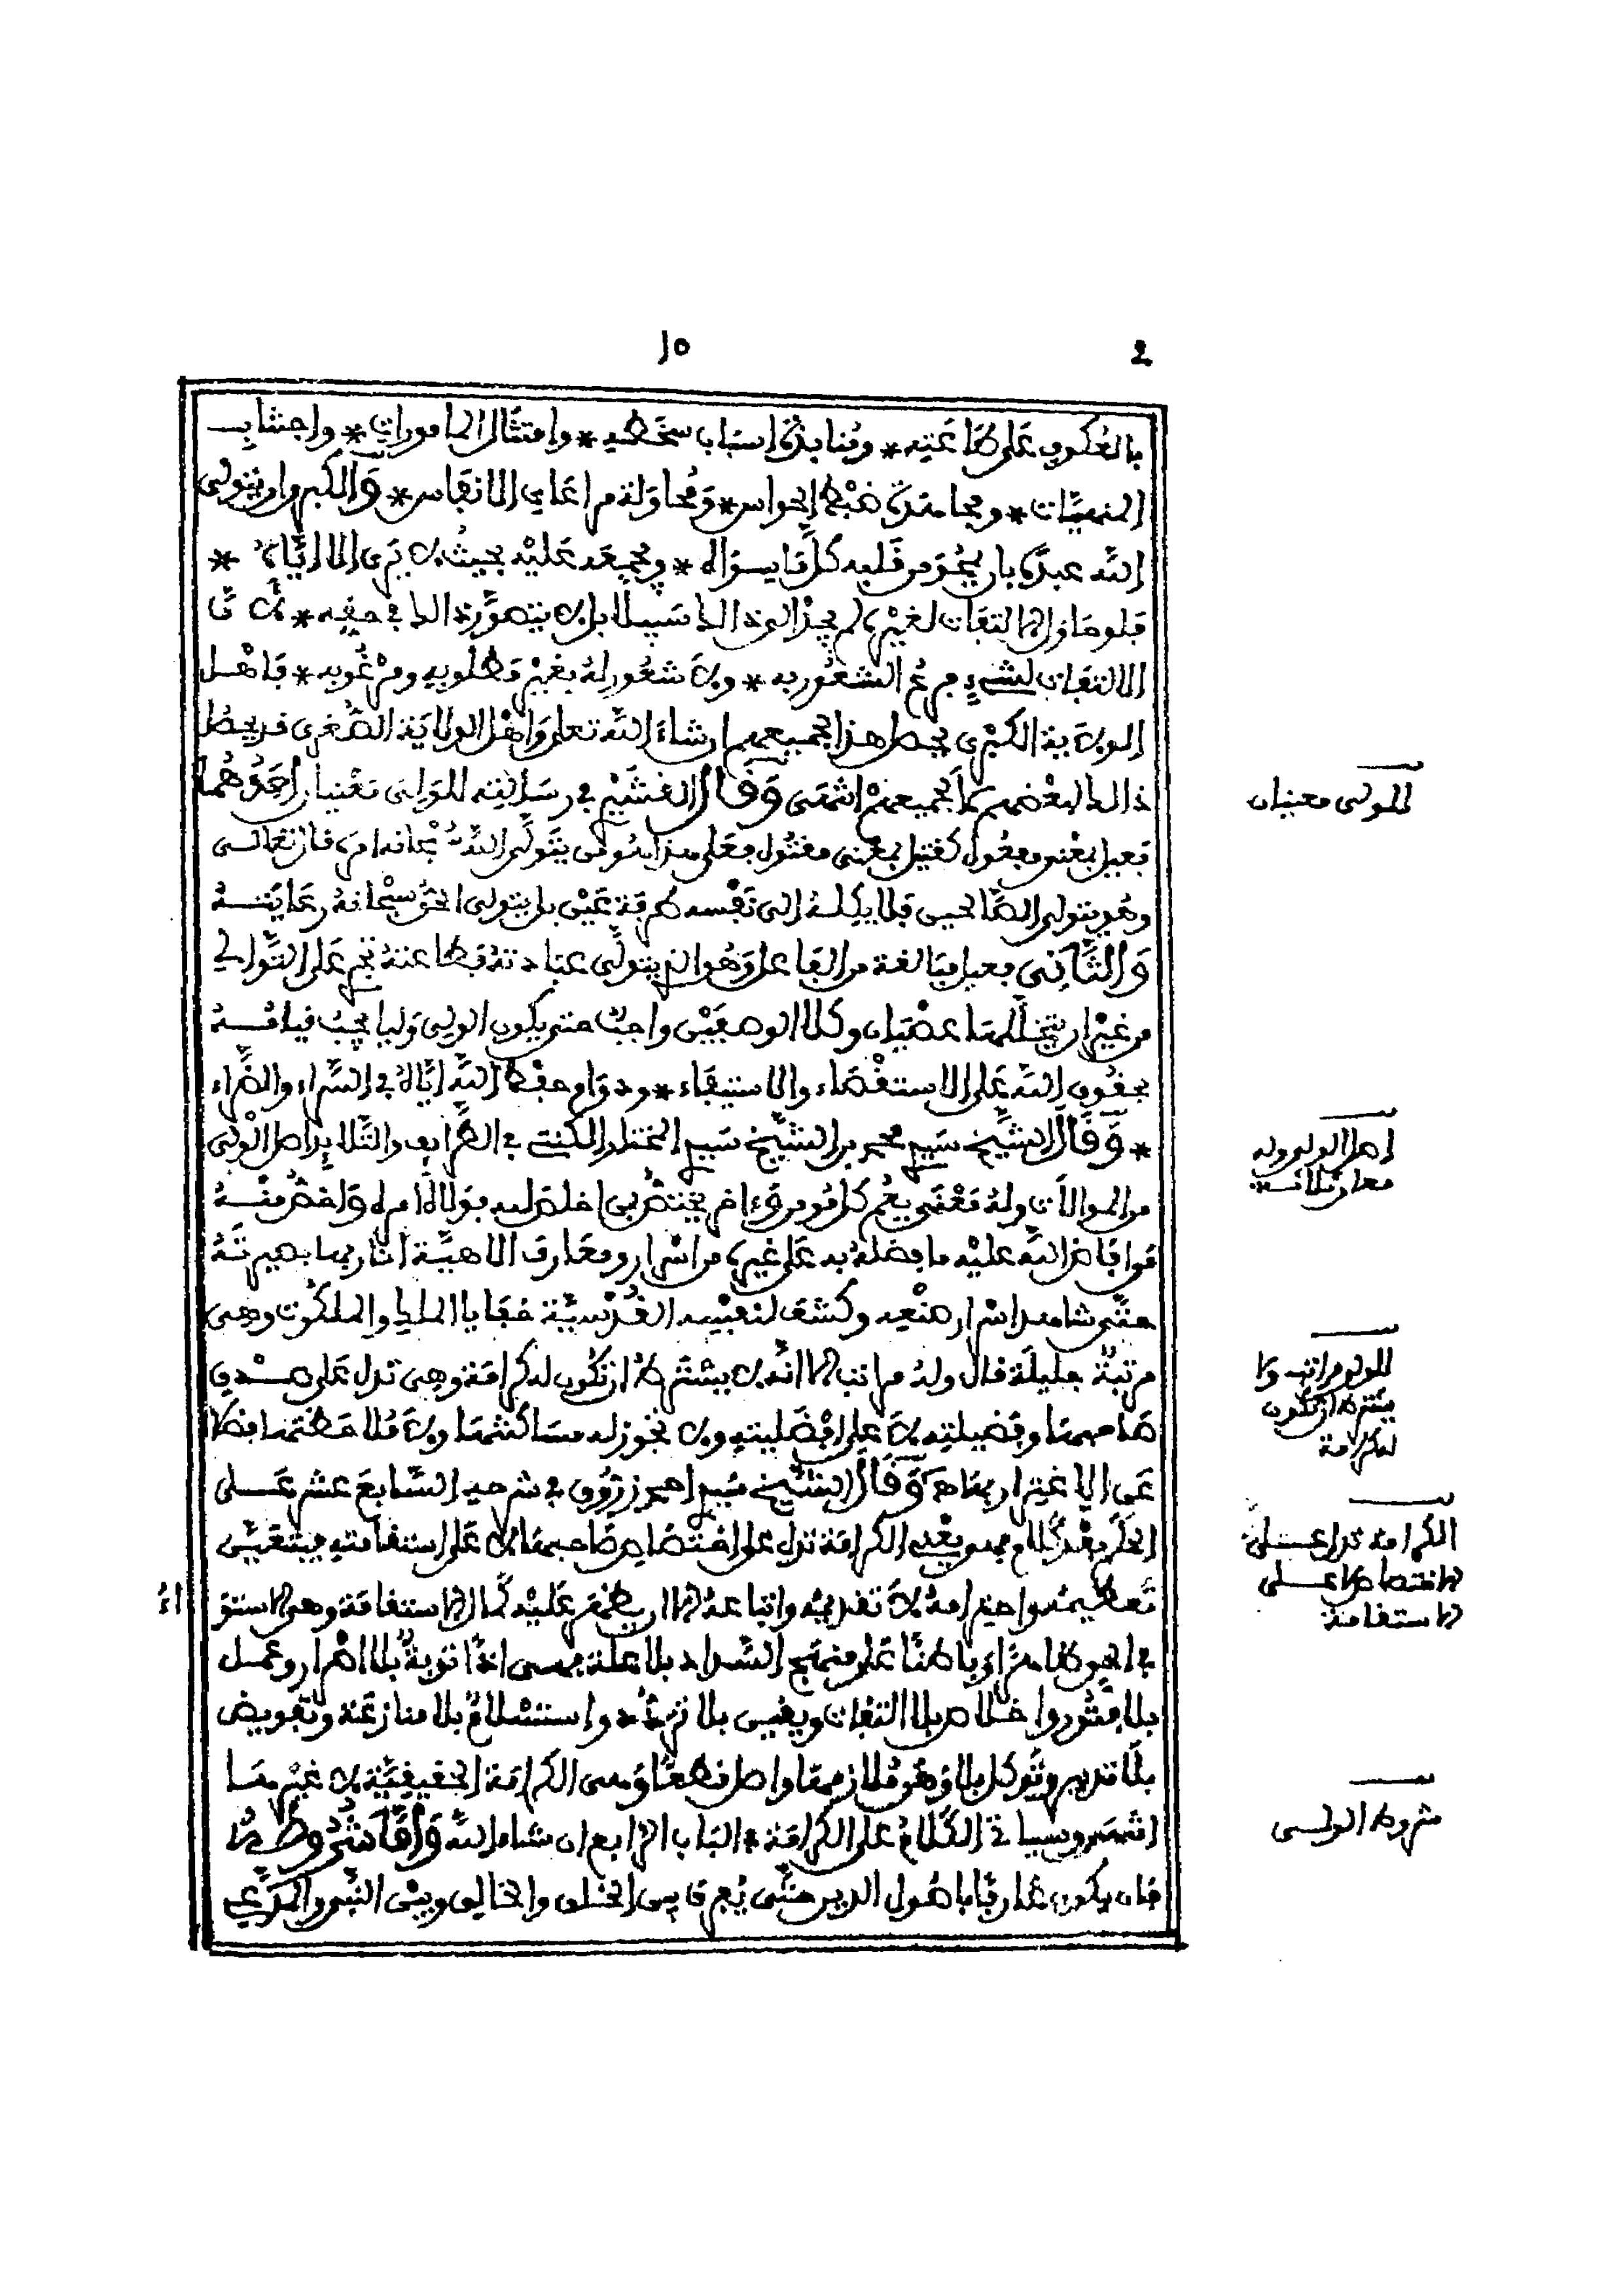 ١٥
بالعكوف على طاعته * ومنابذة اسباب سخطه * وامتثال المامورات * واجتناب
المنهيات * ومجاهدة ضبط الحواس * ومحاولة مراعات الانفاس * والكبرى ان يتولى
الله عبده بان يمحو من قلبه كل ما سواه * ويجمعه عليه بحيث لا يرى الا اياه *
فلو حاول الالتفات لغيره لم يجد الى ذالك سبيلا بل لا يتصور ذالك في حقه * لان
الالتفات لشيء فرع الشعور به * ولا شعور له بغير مطلوبه ومرغوبه * فاهل
الولاية الكبرى يحصل هذا لجميعهم ان شاء الله تعلى واهل الولاية الصغرى قد يحصل
ذالك لبعضهم لا لجميعهم انتهى وقال القشيري في رسالته للولى معنيان احدهما
فعيل بمعنى مفعول كقتيل بمعنى مقتول فعلى هذا هو من يتولى الله سبحانه امره قال تعالى
وهو يتولى الصالحين فلا يكله الى نفسه طرفة عين بل يتولى الحق سبحانه رعايته
والثاني فعيل مبالغة من الفاعل وهو الذي يتولى عبادته فطاعته تجري على التوالي
من غير ان يتخللها عصيان وكلا الوصفين واجب حتى يكون الولى وليا يجب قيامه
بحقوق الله على الاستقصاء والاستيفاء * ودوام حفظ الله اياه في السراء والضراء
* وقال الشيخ سيدي محمد بن الشيخ سيدي المختار الكنتي في الطرايف والتلايد اصل الولى
من الموالات وله معنى يعم كل مومن وءاخر يختص بمن اخلص لله فولاه امره واخص منه
من افاض الله عليه ما فضله به على غيره من اسرار ومعارف الاهية انار بها بصيرته
حتى شاهد اسرار صنعه وكشف لنفسه القدسية خفايا الملك والملكوت وهى
مرتبة جليلة قال وله مراتب الا انه لا يشترط ان تكون له كرامة وهى تدل على صدق
صاحبها وفضيلته لا على افضليته ولا تجوز له مساكنتها ولا ملاحظتها فضلا
عن الاغترار بها ه وقال الشيخ سيدي احمد زروق في شرحه السابع عشر على
الحكم بعد كلام وبعد الكرامة تدل على اختصاص صاحبها لا على استقامته فيتعين
تعظيمه واحترامه لا تقديمه واتباعه الا ان يظهر عليه كمال الاستقامة وهى الاستواء
في الحق ظاهرا وباطنا على منهج السداد بلا علة فهى اذا توبة بلا اصرار وعمل
بلا فتور واخلاص بلا التفات ويقين بلا تردد واستسلام بلا منازعة وتفويض
بلا تدبير وتوكل بلا وهن فلازمها واصل قطعا وهى الكرامة الحقيقية لا غيرها
انتهى وسياتي الكلام على الكرامة * الباب الرابع ان شاء الله واما شروطه
فان يكون عارفا باصول الدين حتى يفرق بين الخلق والخالق وبين النبي والمدعي
للولى معنيان
اصل الولى وله
معان ثلاثة
للولى مراتب ولا
يشترط ان تكون
له كرامة
الكرامة تدل على
الاختصاص لا على
الاستقامة
شروط الولى